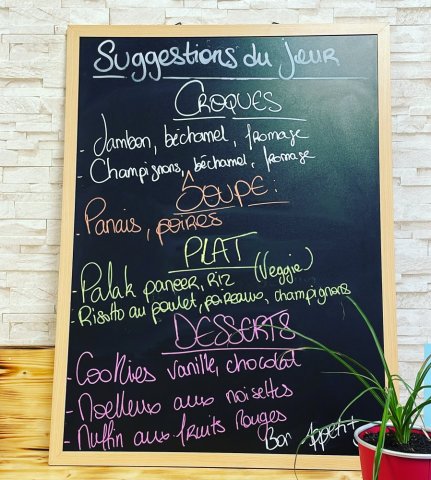 Suggestions du jour
CROQUES
- Jambon, béchamel, fromage
- Champignons, béchamel, fromage
SOUPE:
- Panais, poires
PLAT
- Palak paneer, riz (Veggie)
- Risotto au poulet, poireaux, champignons
DESSERTS
- Cookies vanille, chocolat
- Moelleux aux noisettes
- Muffin aux fruits rouges
Bon Appetit